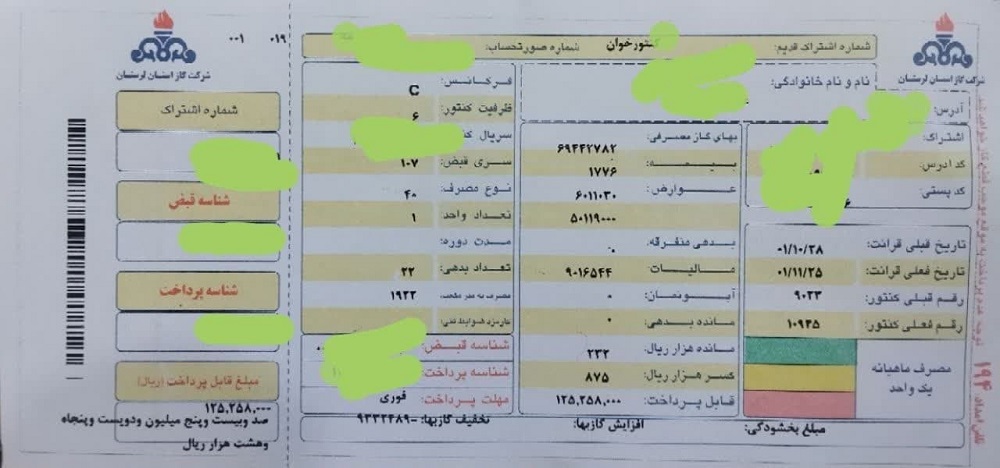 شماره اشتراک قدیم:
کنتورخوان
شماره صورتحساب:
شرکت گاز استان لرستان
نام و نام خانوادگی:
آدرس:
اشتراک:
کد آدرس:
کد پستی:
۶
تاریخ قبلی قرائت: ۰۱/۱۰/۲۸
تاریخ فعلی قرائت: ۰۱/۱۱/۲۵
رقم قبلی کنتور: ۹۰۲۳
رقم فعلی کنتور: ۱۰۹۴۵
مصرف ماهیانه
یک واحد
بهای گاز مصرفی: ۶۹۴۴۲۷۸۲
بیمه: ۱۷۷۶
عوارض: ۶۰۱۱۰۳۰
۵۰۱۱۹۰۰۰
بدهی متفرقه: ۰
مالیات: ۹۰۱۶۵۴۴
آبونمان: ۰
مانده بدهی: ۰
مانده هزار ریال: ۲۳۲
کسر هزار ریال: ۸۷۵
قابل پرداخت: ۱۲۵,۲۵۸,۰۰۰
فرکانس: C
ظرفیت کنتور: ۶
سریال
سری قبض: ۱۰۷
نوع مصرف: ۴۰
تعداد واحد: ۱
مدت دوره:
تعداد بدهی: ۲۲
مصرف به متر مکعب: ۱۹۲۲
شناسه قبض:
شناسه پرداخت:
مهلت پرداخت: فوری
مبلغ بخشودگی:
افزایش گازبها:
تخفیف گازبها: -۹۳۳۲۴۸۹
۰۰۱ ۰۱۹
شرکت گاز استان لرستان
شماره اشتراک
شناسه قبض
شناسه پرداخت
مبلغ قابل پرداخت (ریال)
۱۲۵,۲۵۸,۰۰۰
صد وبیست وپنج میلیون ودویست وپنجاه
وهشت هزار ریال
تلفن امداد ۱۹۴